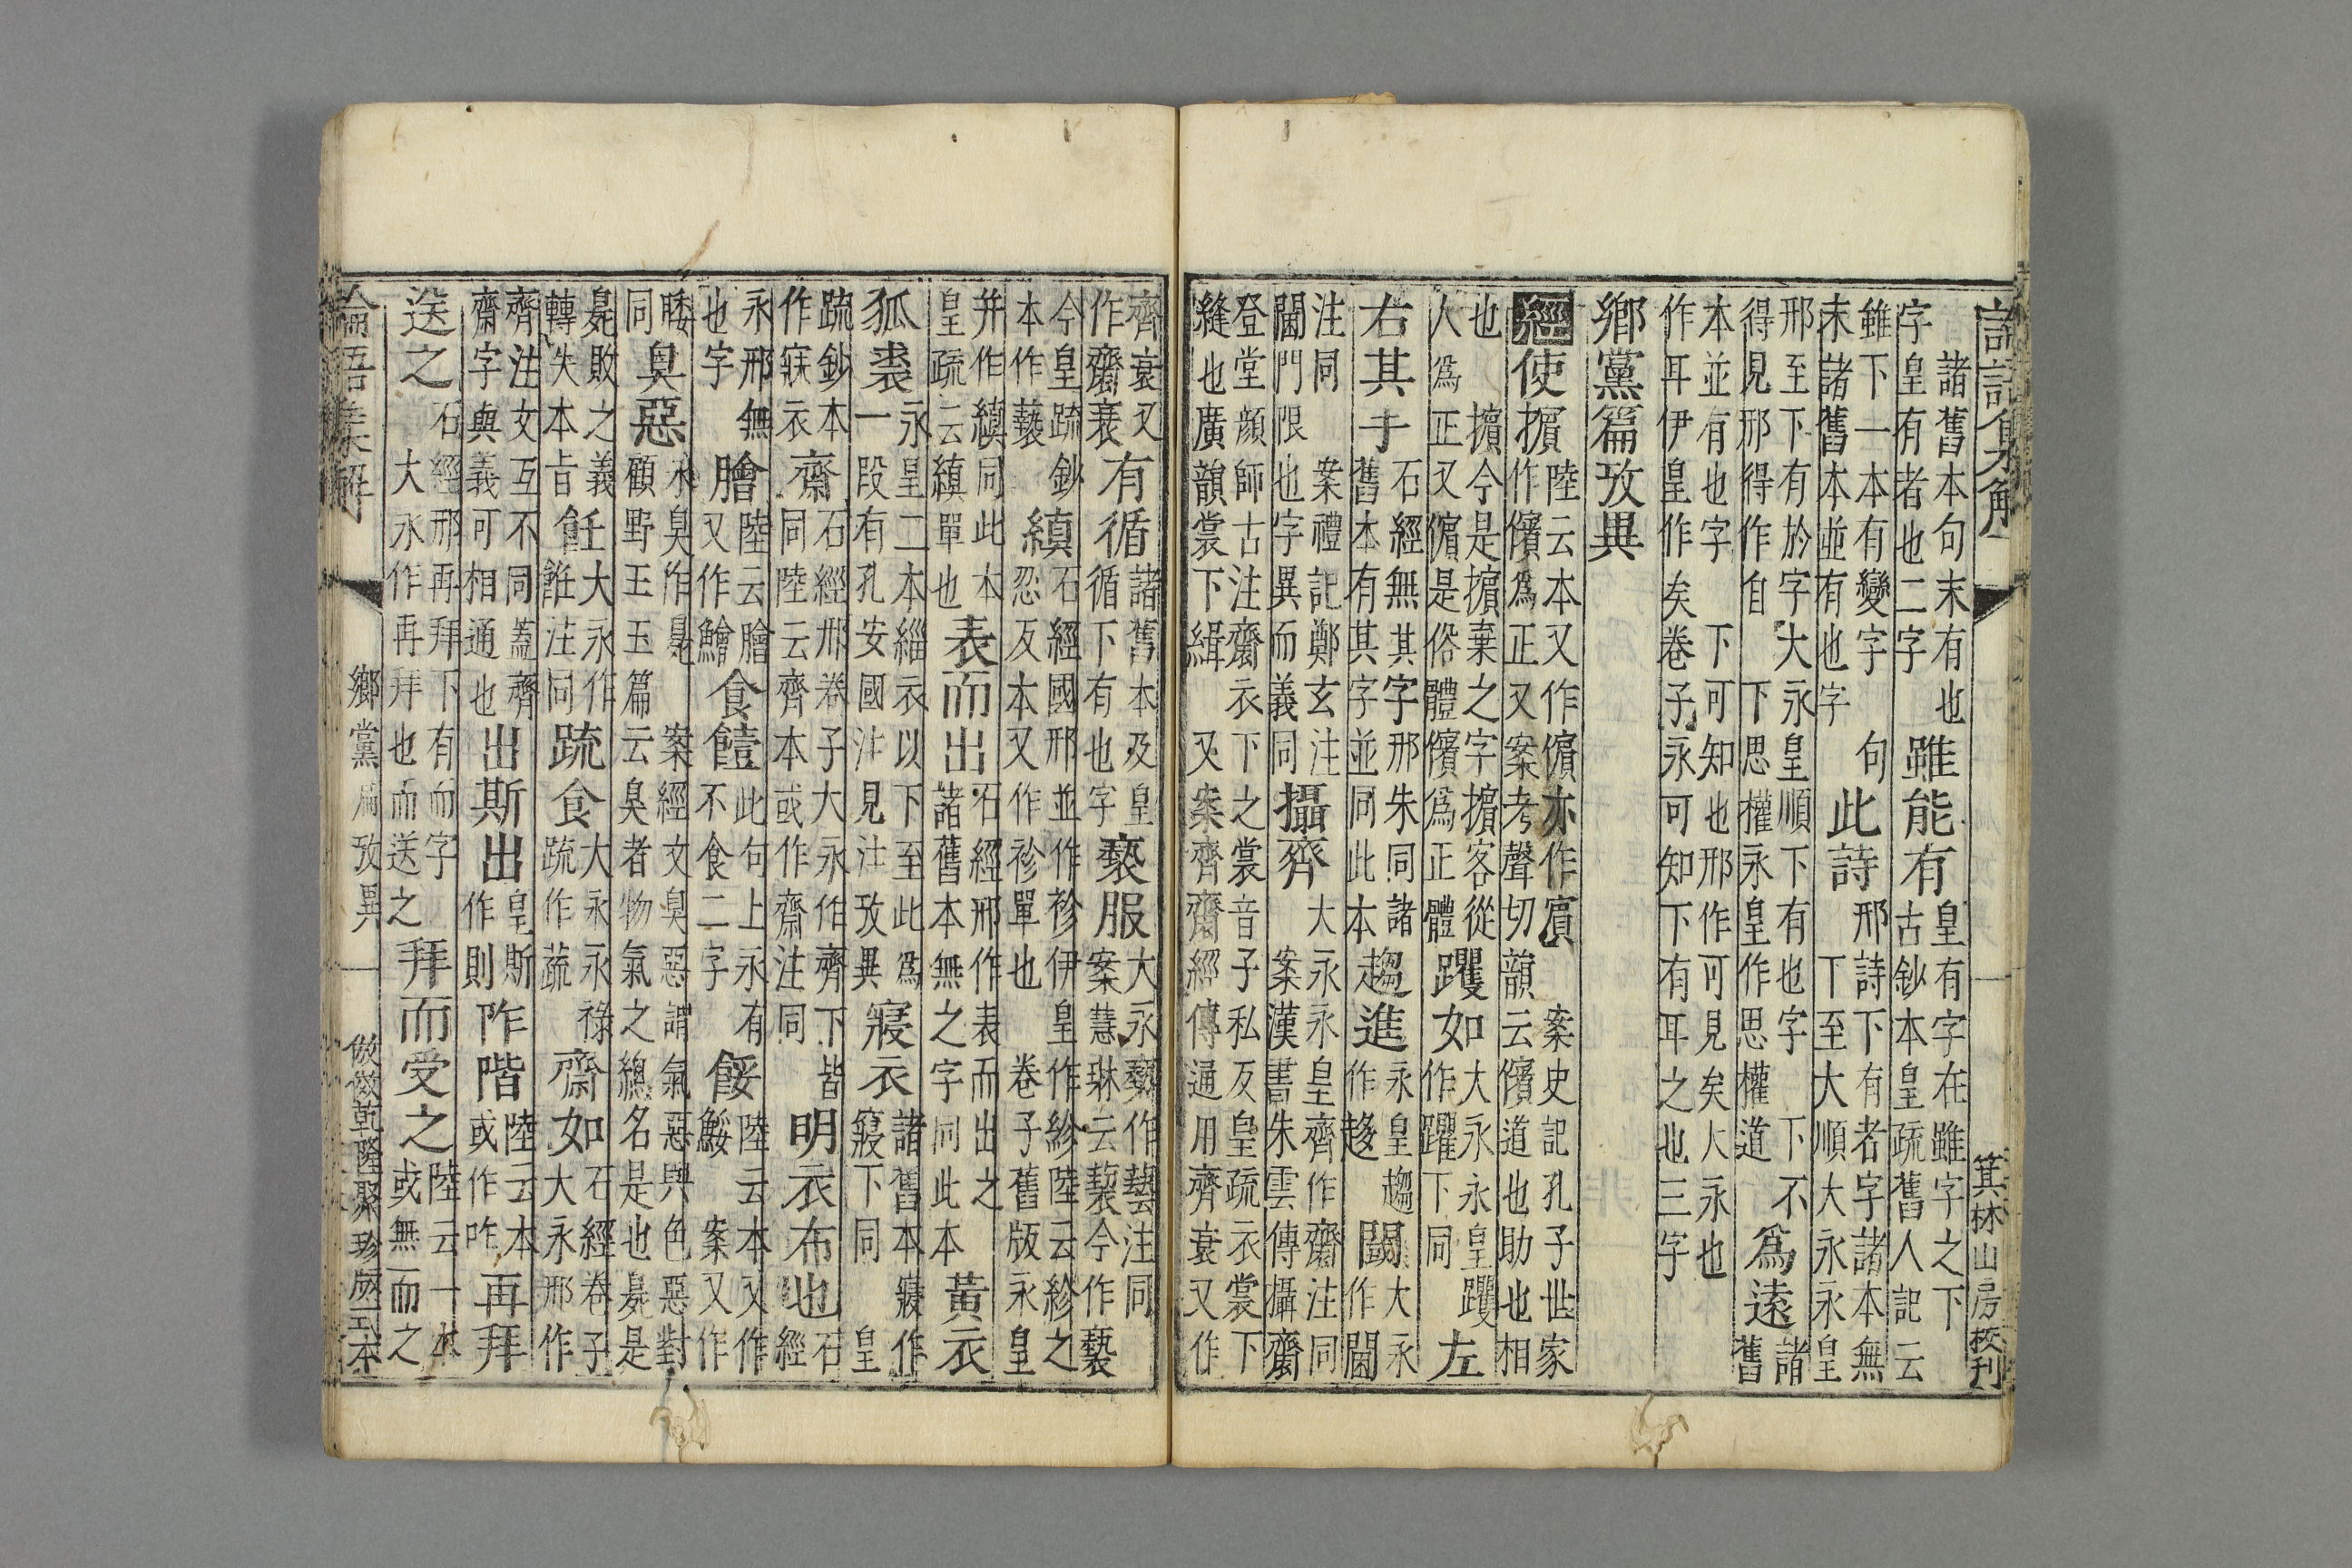 論語集解 箕林山房校刊
諸舊本句末有也字皇有者也二字 雖能有 皇有字在雖字之下古鈔本皇疏舊人記云
雖下一本有變字 句末諸舊本並有也字 此詩 邢詩下有者字諸本無丅至大順大永永皇
邢至下有於字大永皇順下有也字 下不得見邢得作自 下思權永皇作思權道 為遠 諸舊
本並有也字 下可知也邢作可見矣大永也作耳伊皇作矣卷子永可知下有耳之也三字
鄉黨篇攷異
經使擯 陸云本又作儐亦作賓 案史記孔子世家作儐為正又案考聲切韻云儐道也助也相
也 擯今是擯棄之字擯客從人為正又儐是俗體儐為正體 躩如 大永永皇躩作躍下同 左
右其手 石經無其字邢朱同諸舊本有其字並同此本 趨進 永皇趨作趍 大永作閫
注同 案禮記鄭玄注閫門限也字異而義同 攝齊 大永永皇齊作齋注同 案漢書朱雲傳攝齋
登堂顏師古注齋衣下之裳音子私反皇疏衣裳下縫也廣韻裳下緝 又案齊齋經傳通用齊衰又作
齊衰又作齋衰 有循 諸舊本及皇循下有也字 褻服 大永褻作䙝注同 案慧琳云䙝今作褻
今皇疏鈔本作褻 縝 石經國邢並作袗伊皇作紾陸云紾之忍反本又作袗單也 卷子舊版永皇
并作縝同此本皇疏云縝單也 表而出 石經邢作表而出之諸舊本無之字同此本 黃衣
狐裘 永皇二本緇衣以下至此為一段有孔安國注見注攷異 寢衣 諸舊本寢作寑下同 皇
疏鈔本作寐衣 齋 石經邢卷子大永作齊下皆同陸云齊本或作齋注同 明衣布也 石經
永邢無也字 膾 陸云膾又作鱠 食饐 此句上永有不食二字 餒 陸云本又作鮾 案又作
同 臭惡 永臭作㚖 案經文臭惡謂氣惡與色惡對顧野王玉篇云臭者物氣之總名是也㚖是
㚖敗之義轉失本旨 飪 大永作誰注同 疏食 大永永祿疏作蔬 齋如 石經卷子大永邢作
齊注文互不同蓋齊齋字與義可相通也 出斯出 皇斯作則 阼階 陸云本或作咋 再拜
送之 石經邢再拜下有而字大永作再拜也而送之 拜而受之 陸云一本或無而之
論語集解 鄉黨扃攷異 倣傚乾隆聚珍版式本